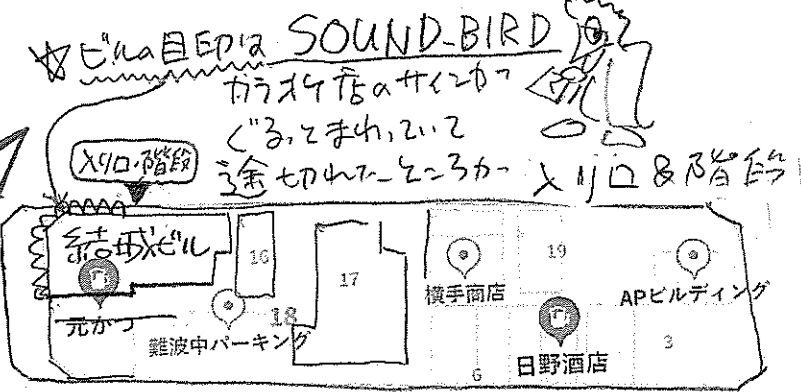 ☆ビルの目印は SOUND-BIRD
カラオケ店のサインが
ぐるっとまわっていて
途切れたところが 入り口&階段
入り口・階段
結城ビル
16
17
19
横手商店
APビルディング
元がつ
18
難波中パーキング
日野酒店
3
6